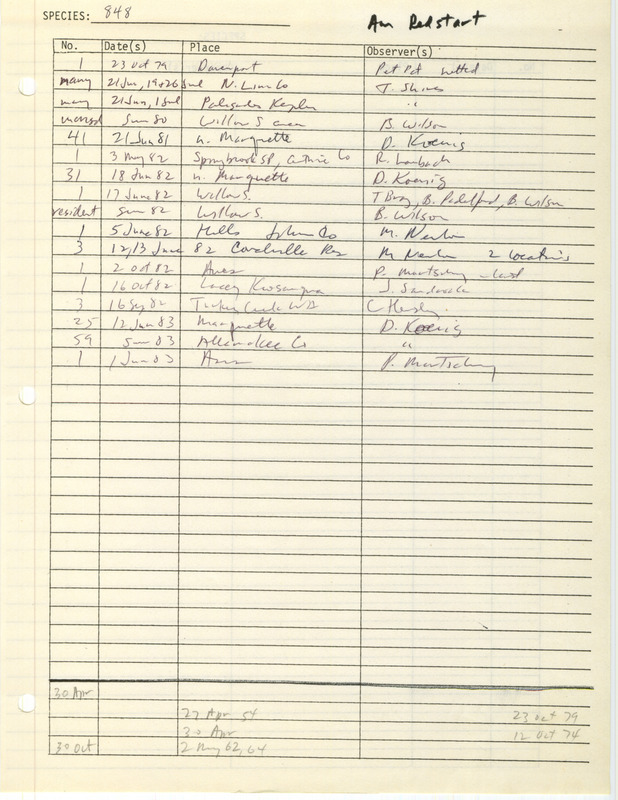 SPECIES: 848
Am Redstart
No. Date(s) Place Observer(s)
1 23 Oct 79 Davenport Pet Pet
many 21 Jun, 19+26 Jul N. Linn Co T. Shires
many 21 Jun, 1 Jul Palisades Kepler "
Jun 80 Willow S area B. Wilson
41 21 Jun 81 n. Marquette D. Koenig
1 3 May 82 Springbrook SP, Guthrie Co R.
31 18 Jun 82 n. Marquette D. Koenig
1 17 June 82 Willow S. T Bray, B. Padelford, B. Wilson
resident Jun 82 Willow S. B. Wilson
1 5 June 82 Mills Johnson Co M. Newlon
3 12/13 June 82 Coralville Res M Newlon 2 locations
1 2 Oct 82 Ames P. Martsching
1 16 Oct 82 Lacey Keosauqua J. Sandrock
3 16 Sep 82 Turkey Creek
25 12 Jun 83 Marquette D. Koenig
59 Jun 83 Allamakee Co "
1 1 Jun 83 Ames P. Martsching
30 Apr
27 Apr 54 23 Oct 79
30 Apr 12 Oct 74
30 Oct 2 May 62, 64